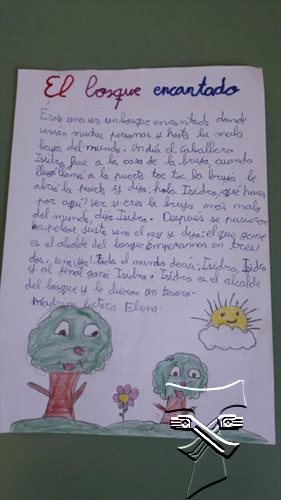 El bosque encantado
Érase una vez un bosque encantado donde
vivían muchas personas y hasta la mala
bruja del mundo. Un día el caballero
Isidro fue a la casa de la bruja, cuando
llegó llamó a la puerta toc toc la bruja le
abrió la puerta y dijo: hola Isidro, ¿qué haces
por aquí? Ver si eres la bruja más mala
del mundo, dijo Isidro. Después se pusieron
a pelear, justo vino el rey y dijo: el que gane
es el alcalde del bosque empezamos en tres,
dos, uno ¡ya! Todo el mundo decía: Isidro, Isidro
y al final ganó Isidro. Isidro es el alcalde
del bosque y le dieron un tesoro.
Madrina lectora Elena.